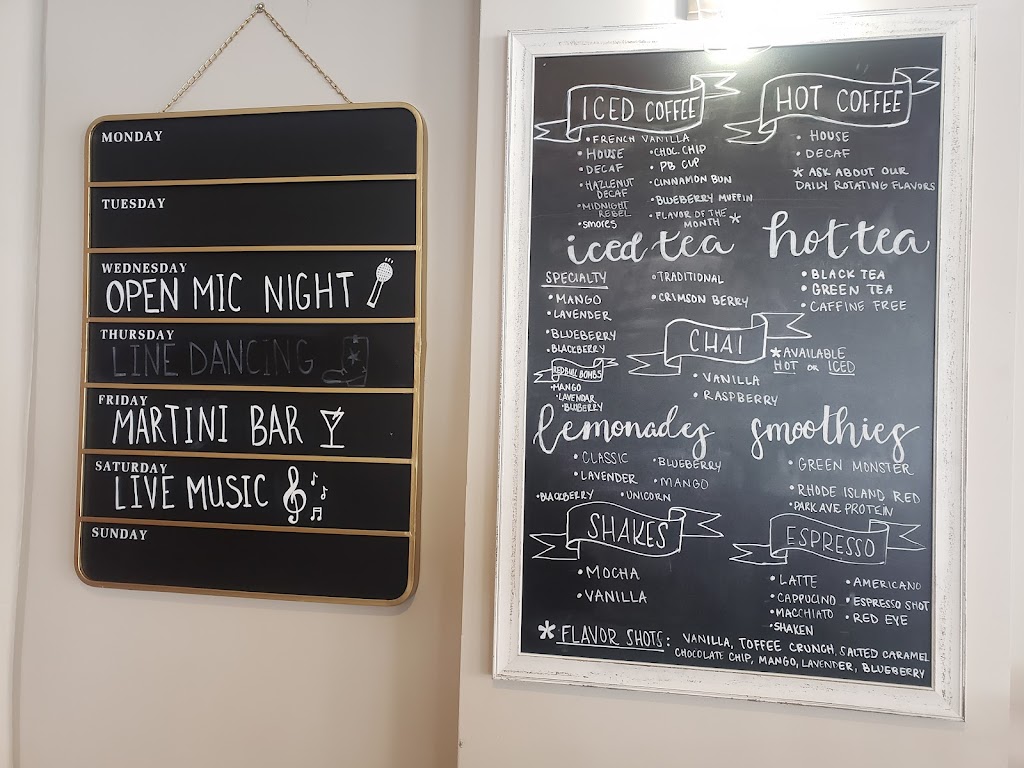 MONDAY
TUESDAY
WEDNESDAY
OPEN MIC NIGHT
THURSDAY
LINE DANCING
FRIDAY
MARTINI BAR
SATURDAY
LIVE MUSIC
SUNDAY
ICED COFFEE
• FRENCH VANILLA
• HOUSE
• DECAF
• HAZLENUT
DECAF
• MIDNIGHT
REBEL
• SMORES
• CHOC. CHIP
• PB CUP
• CINNAMON BUN
• BLUEBERRY MUFFIN
• FLAVOR OF THE
MONTH *
HOT COFFEE
• HOUSE
• DECAF
* ASK ABOUT OUR
DAILY ROTATING FLAVORS
iced tea
SPECIALTY
• MANGO
• LAVENDER
• BLUEBERRY
• BLACKBERRY
• TRADITIONAL
• CRIMSON BERRY
REDBULL BOMBS
• MANGO
• LAVENDAR
• BLUBERRY
hot tea
• BLACK TEA
• GREEN TEA
• CAFFINE FREE
CHAI
* AVAILABLE
HOT OR ICED
• VANILLA
• RASPBERRY
lemonades
• CLASSIC
• LAVENDER
• BLACKBERRY
• BLUEBERRY
• MANGO
• UNICORN
smoothies
• GREEN MONSTER
• RHODE ISLAND RED
• PARK AVE PROTEIN
SHAKES
• MOCHA
• VANILLA
ESPRESSO
• LATTE
• CAPPUCINO
• MACCHIATO
• SHAKEN
• AMERICANO
• ESPRESSO SHOT
• RED EYE
* FLAVOR SHOTS: VANILLA, TOFFEE CRUNCH, SALTED CARAMEL
CHOCOLATE CHIP, MANGO, LAVENDER, BLUEBERRY